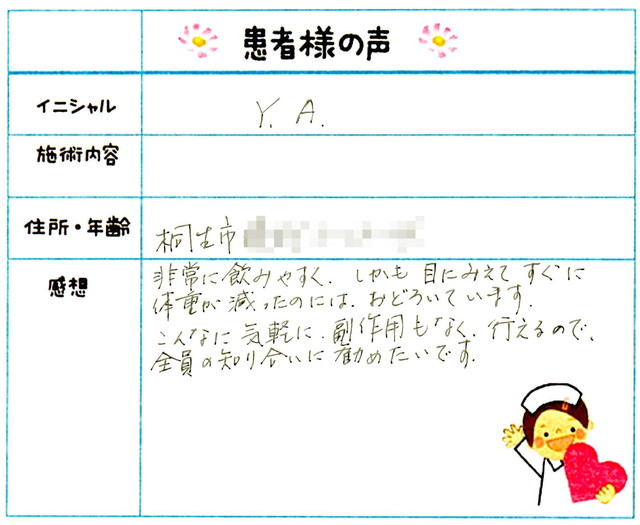 患者様の声
イニシャル
Y. A.
施術内容
住所・年齢
桐生市
感想
非常に飲みやすく、しかも目にみえてすぐに
体重が減ったのには、おどろいています。
こんなに気軽に、副作用もなく、行えるので、
全員の知り合いに勧めたいです。